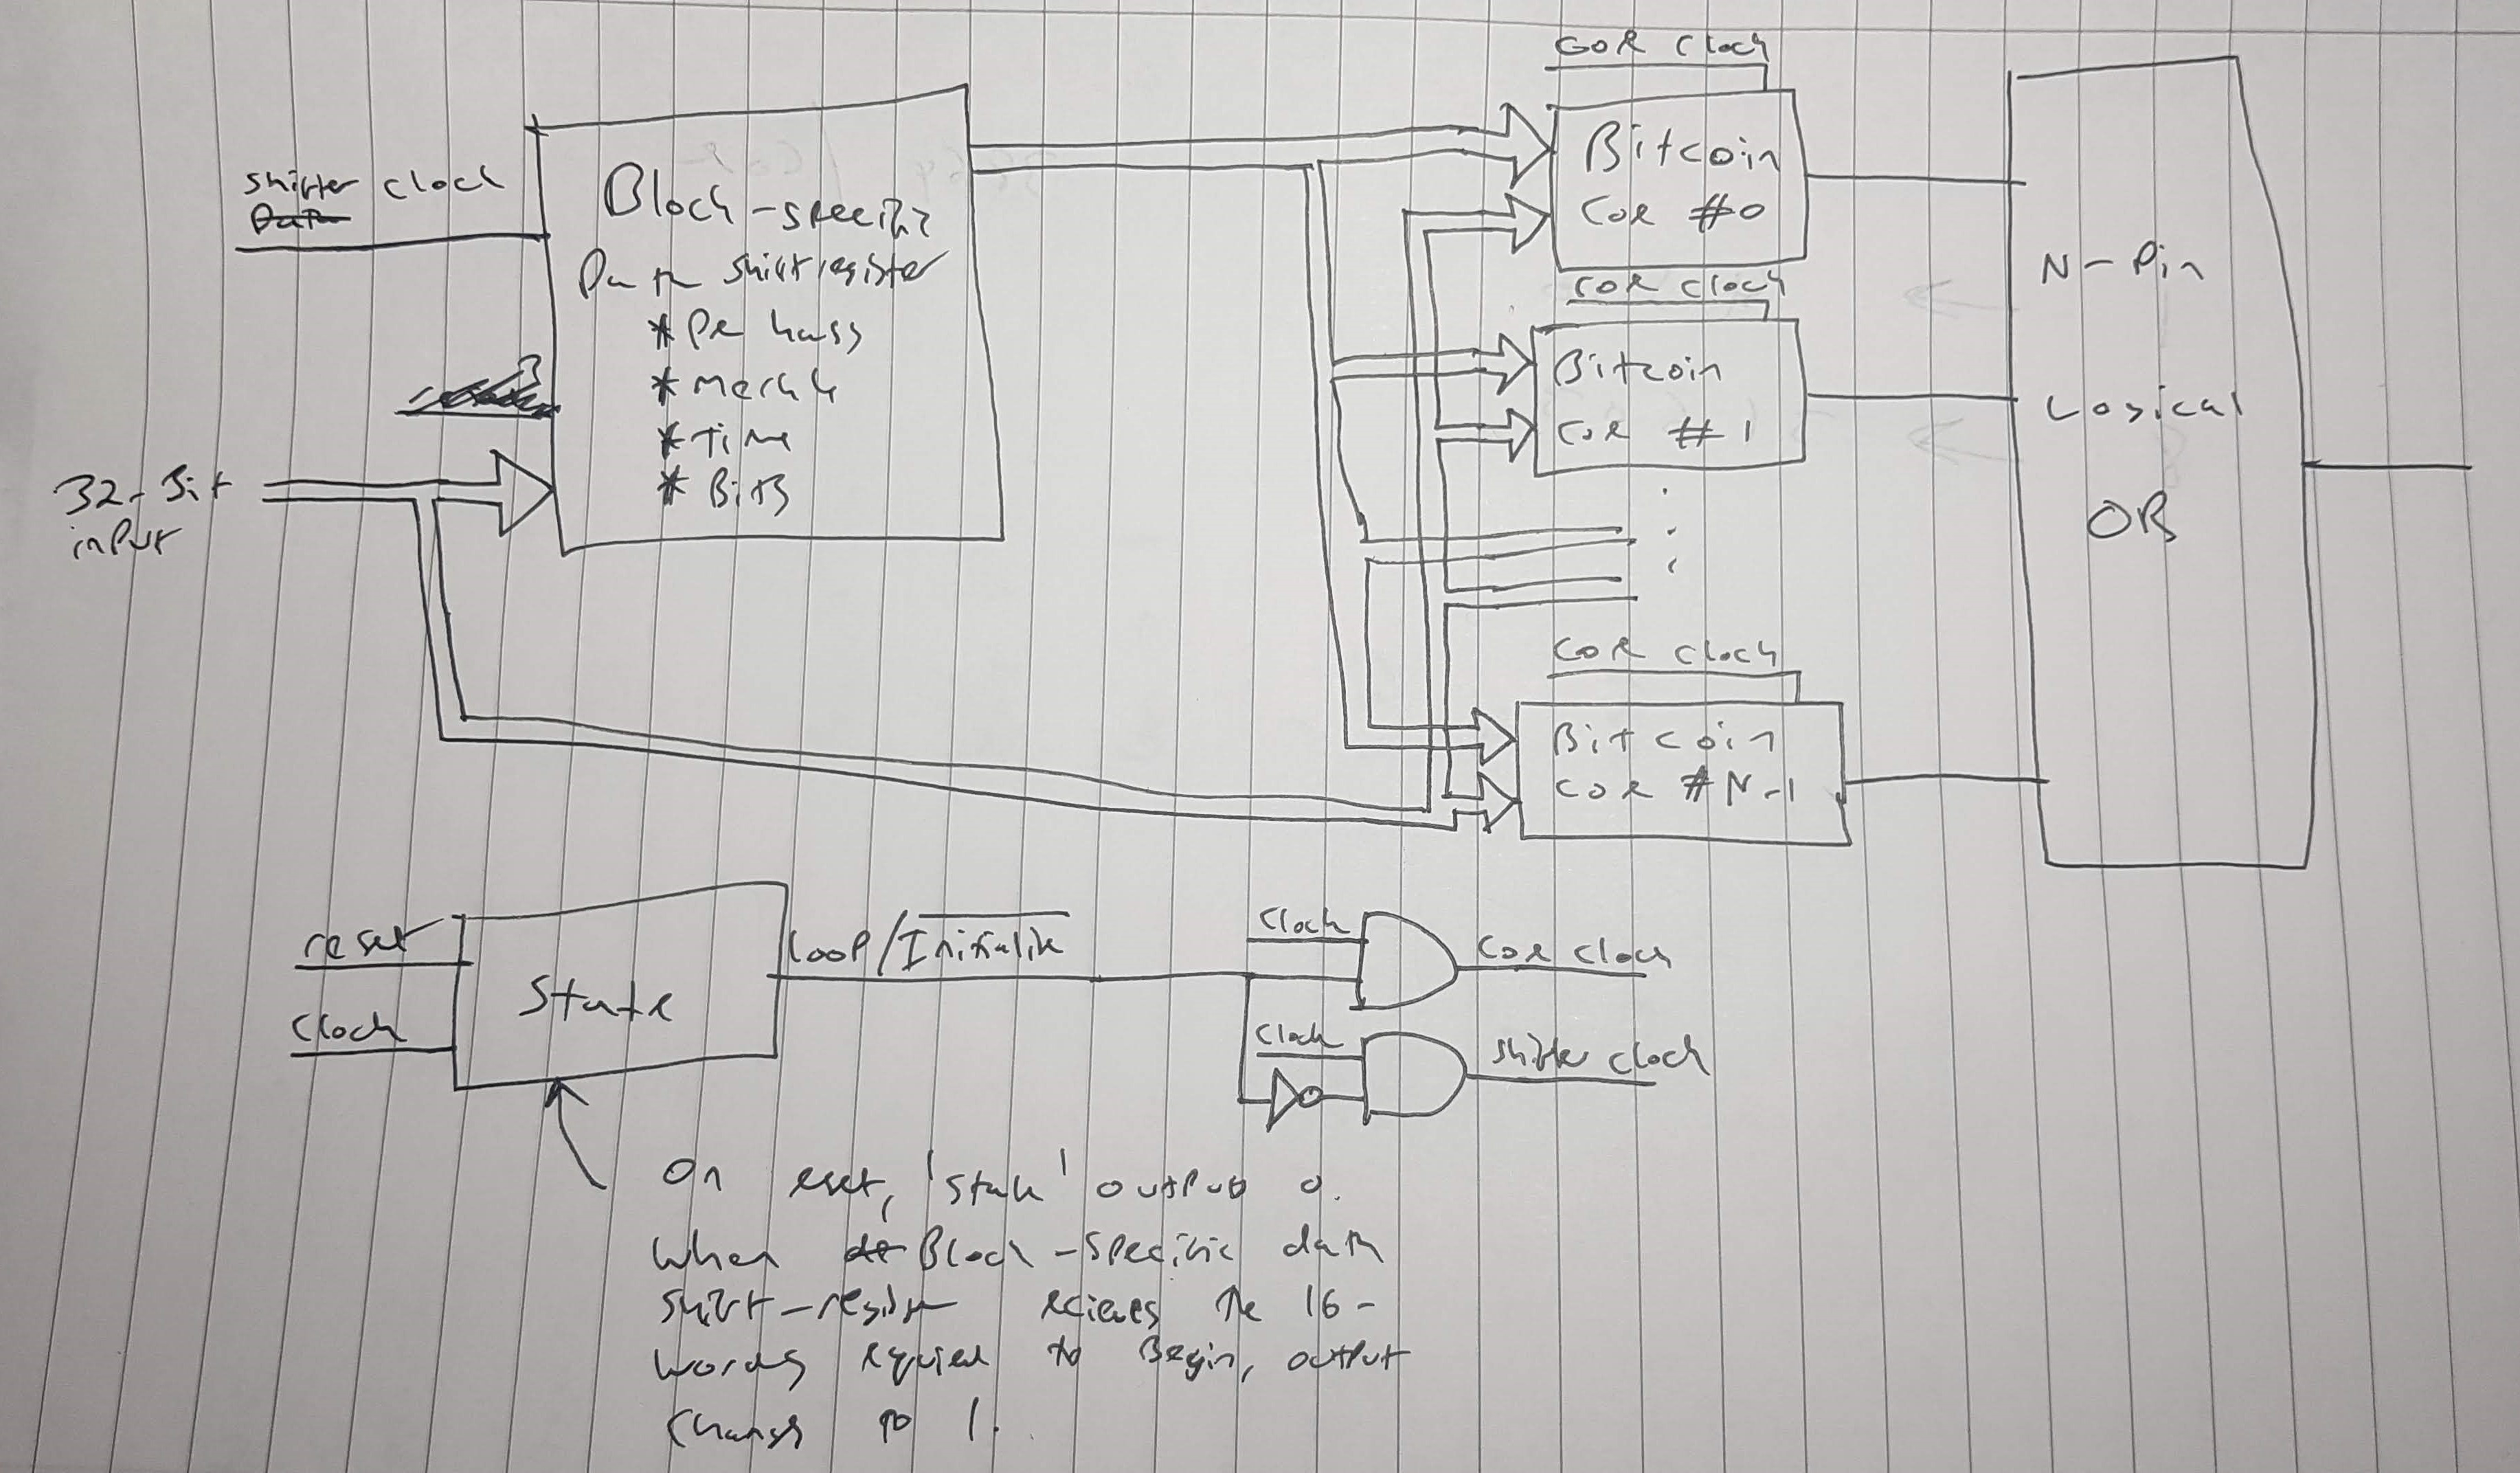 shifter clock
Data
Block-specific
Data shift register
* Pre hass
* Merkle
* Time
* Bits
32-Bit
input
Core clock
Bitcoin
Core #0
Core clock
Bitcoin
Core #1
Core clock
Bitcoin
Core #N-1
N-Pin
Logical
OR
reset
Clock
State
Loop/Initialize
Clock
Core clock
Clock
shifter clock
On reset, 'state' outputs 0.
When Block-Specific data
shift-register recieves the 16-
words required to Begin, output
Changes to 1.